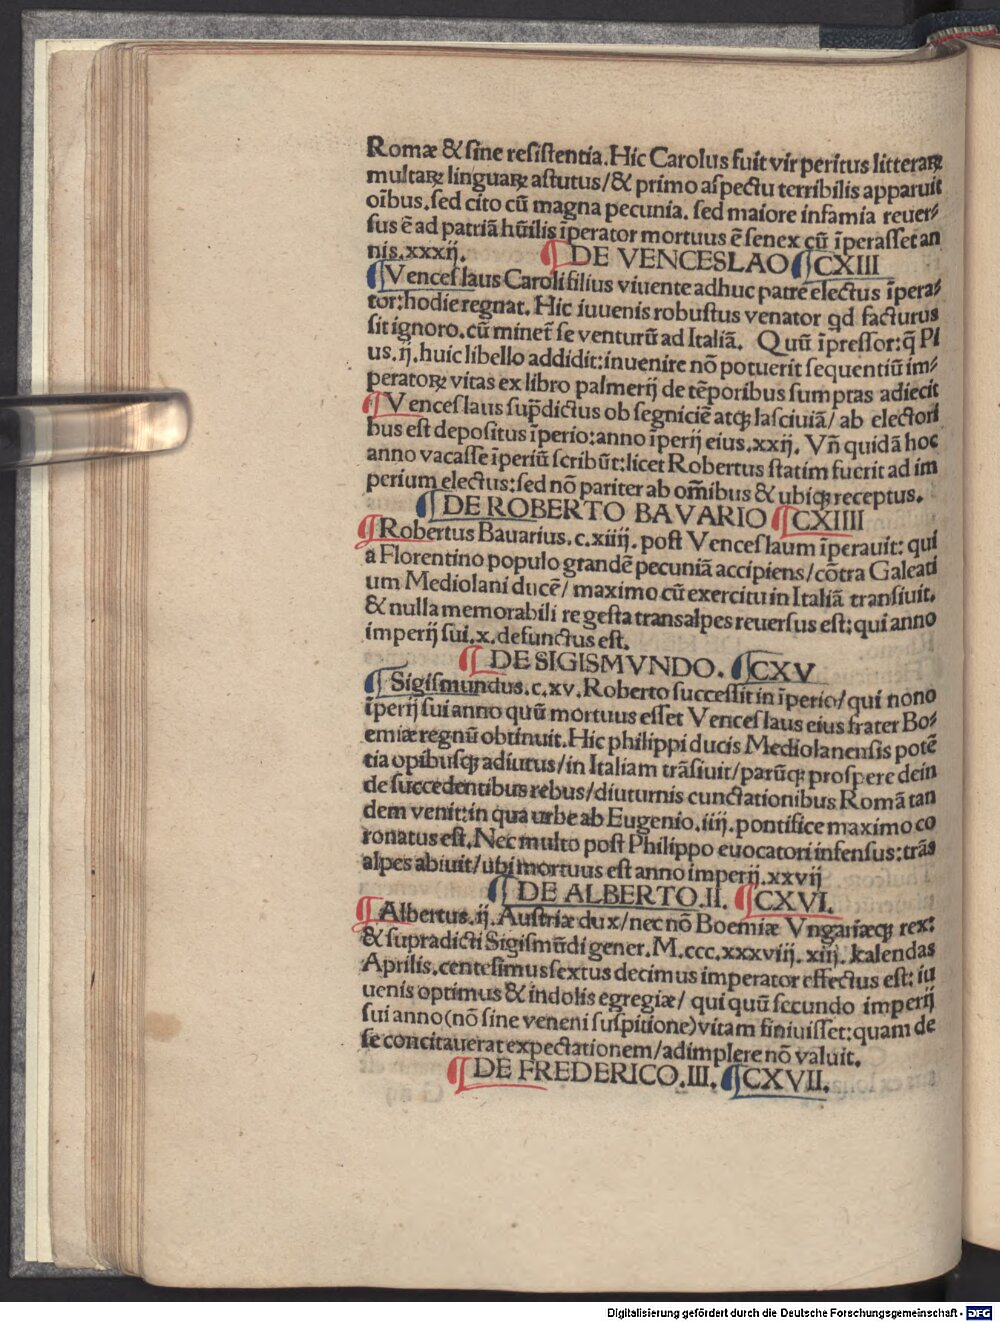 Romæ & ſine reſiſtentia. Hic Carolus fuit vir peritus litteraꝝ
multaꝝ linguaꝝ aſtutus/& primo aſpectu terribilis apparuit
oībus. ſed cito cū magna pecunia. ſed maiore infamia reuer⸗
ſus ē ad patriā hūilis īperator mortuus ē ſenex cū īperaſſet an
nis. xxxij.
¶ DE VENCESLAO ¶ CXIII
¶ Venceſlaus Caroli filius viuente adhuc patre electus īpera⸗
tor: hodie regnat. Hic iuuenis robuſtus venator qd facturus
ſit ignoro. cū minet̄ ſe venturū ad Italiā. Quū īpreſſor: q̄ Pi
us. ij. huic libello addidit: inuenire nō potuerit ſequentiū im⸗
peratoꝝ vitas ex libro palmerij de tēporibus ſumptas adiecit
¶ Venceſlaus ſup̄dictus ob ſegniciē atqꝫ laſciuiā/ ab electori
bus eſt depoſitus īperio: anno īperij eius. xxij. Vñ quidā hoc
anno vacaſſe īperiū ſcribūt: licet Robertus ſtatim fuerit ad im
perium electus: ſed nō pariter ab om̄ibus & ubiqꝫ receptus.
¶ DE ROBERTO BAVARIO ¶ CXIIII
¶ Robertus Bauarius. c. xiiij. poſt Venceſlaum īperauit: qui
a Florentino populo grandē pecuniā accipiens/cōtra Galeati
um Mediolani ducē/ maximo cū exercitu in Italiā tranſiuit.
& nulla memorabili re geſta tranſalpes reuerſus eſt: qui anno
imperij ſui. x. defunctus eſt.
¶ DE SIGISMVNDO. ¶ CXV
¶ Sigiſmundus. c. xv. Roberto ſucceſſit in īperio/ qui nono
īperij ſui anno quū mortuus eſſet Venceſlaus eius frater Bo⸗
emiæ regnū obtinuit. Hic philippi ducis Mediolanenſis potē
tia opibuſqꝫ adiutus/in Italiam trāſiuit/parūqꝫ proſpere dein
de ſuccedentibus rebus/diuturnis cunctationibus Romā tan
dem venit: in qua urbe ab Eugenio. iiij. pontifice maximo co
ronatus eſt. Nec multo poſt Philippo euocatori infenſus: trās
alpes abiuit/ubi mortuus eſt anno imperij. xxvij
¶ DE ALBERTO. II. ¶ CXVI.
¶ Albertus. ij. Auſtriæ dux/nec nō Boemiæ Vngariæqꝫ rex:
& ſupradicti Sigiſmūdi gener. M. ccc. xxxviij. xiij. kalendas
Aprilis. centeſimus ſextus decimus imperator effectus eſt: iu
uenis optimus & indolis egregiæ/ qui quū ſecundo imperij
ſui anno (nō ſine veneni ſuſpitione) vitam finiuiſſet: quam de
ſe concitauerat expectationem/adimplere nō valuit.
¶ DE FREDERICO. III. ¶ CXVII.
Digitalisierung gefördert durch die Deutsche Forschungsgemeinschaft - DFG